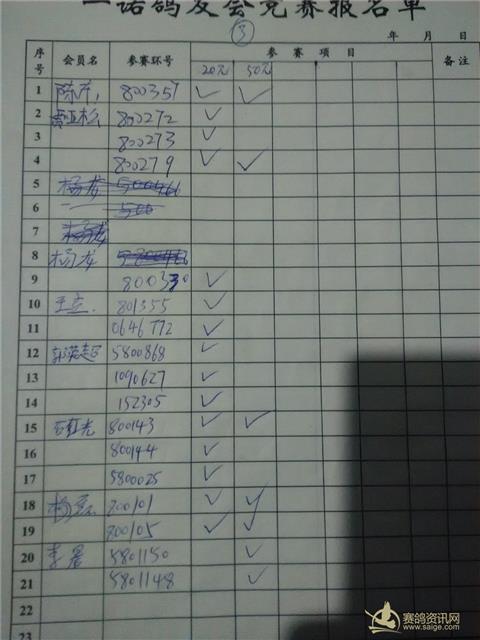 一诺鸽友会竞赛报名单
③
年 月 日
序号 会员名 参赛环号 参赛项目 备注
20元 50元
1 800357 ✓ ✓
2 800272 ✓
3 800273 ✓
4 800279 ✓ ✓
5 杨龙
6 500
7 杨龙
8 杨龙
9 800330 ✓
10 801355 ✓
11 0646772 ✓
12 5800868 ✓
13 1090627 ✓
14 152305 ✓
15 800143 ✓ ✓
16 800144 ✓
17 5800025 ✓
18 200101 ✓ ✓
19 200105 ✓ ✓
20 5801150 ✓
21 5801148 ✓
22
23
赛鸽资讯网
www.saige.com